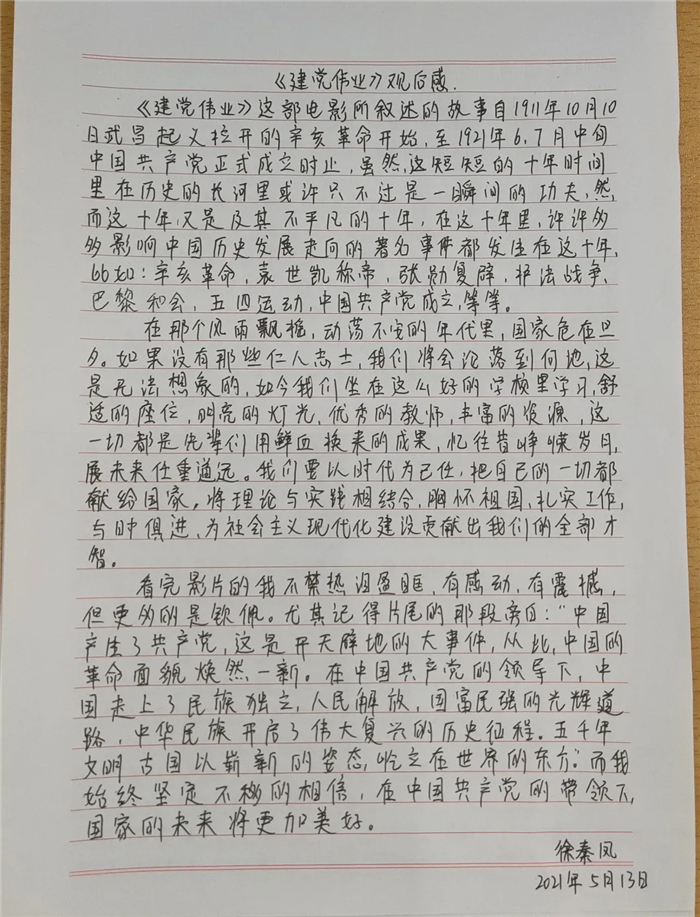 《建党伟业》观后感.
《建党伟业》这部电影所叙述的故事自1911年10月10
日武昌起义拉开的辛亥革命开始,至1921年6.7月中旬
中国共产党正式成立时止,虽然,这短短的十年时间
里在历史的长河里或许只不过是一瞬间的功夫,然
而这十年,又是及其不平凡的十年,在这十年里,许许多
多影响中国历史发展走向的著名事件都发生在这十年,
比如:辛亥革命,袁世凯称帝,张勋复辟,护法战争,
巴黎和会,五四运动,中国共产党成立,等等。
在那个风雨飘摇,动荡不安的年代里,国家危在旦
夕。如果没有那些仁人志士,我们将会沦落到何地,这
是无法想象的,如今我们坐在这么好的学校里学习,舒
适的座位,明亮的灯光,优秀的教师,丰富的资源,这
一切都是先辈们用鲜血换来的成果,忆往昔峥嵘岁月,
展未来任重道远。我们要以时代为己任,把自己的一切都
献给国家,将理论与实践相结合,胸怀祖国,扎实工作,
与时俱进,为社会主义现代化建设贡献出我们的全部才
智。
看完影片的我不禁热泪盈眶,有感动,有震撼,
但更多的是钦佩。尤其记得片尾的那段旁白:“中国
产生了共产党,这是开天辟地的大事件,从此,中国的
革命面貌焕然一新。在中国共产党的领导下,中
国走上了民族独立,人民解放,国富民强的光辉道
路,中华民族开启了伟大复兴的历史征程。五千年
文明古国以崭新的姿态,屹立在世界的东方.”而我
始终坚定不移的相信,在中国共产党的带领下,
国家的未来将更加美好。
徐秦凤
2021年5月13日